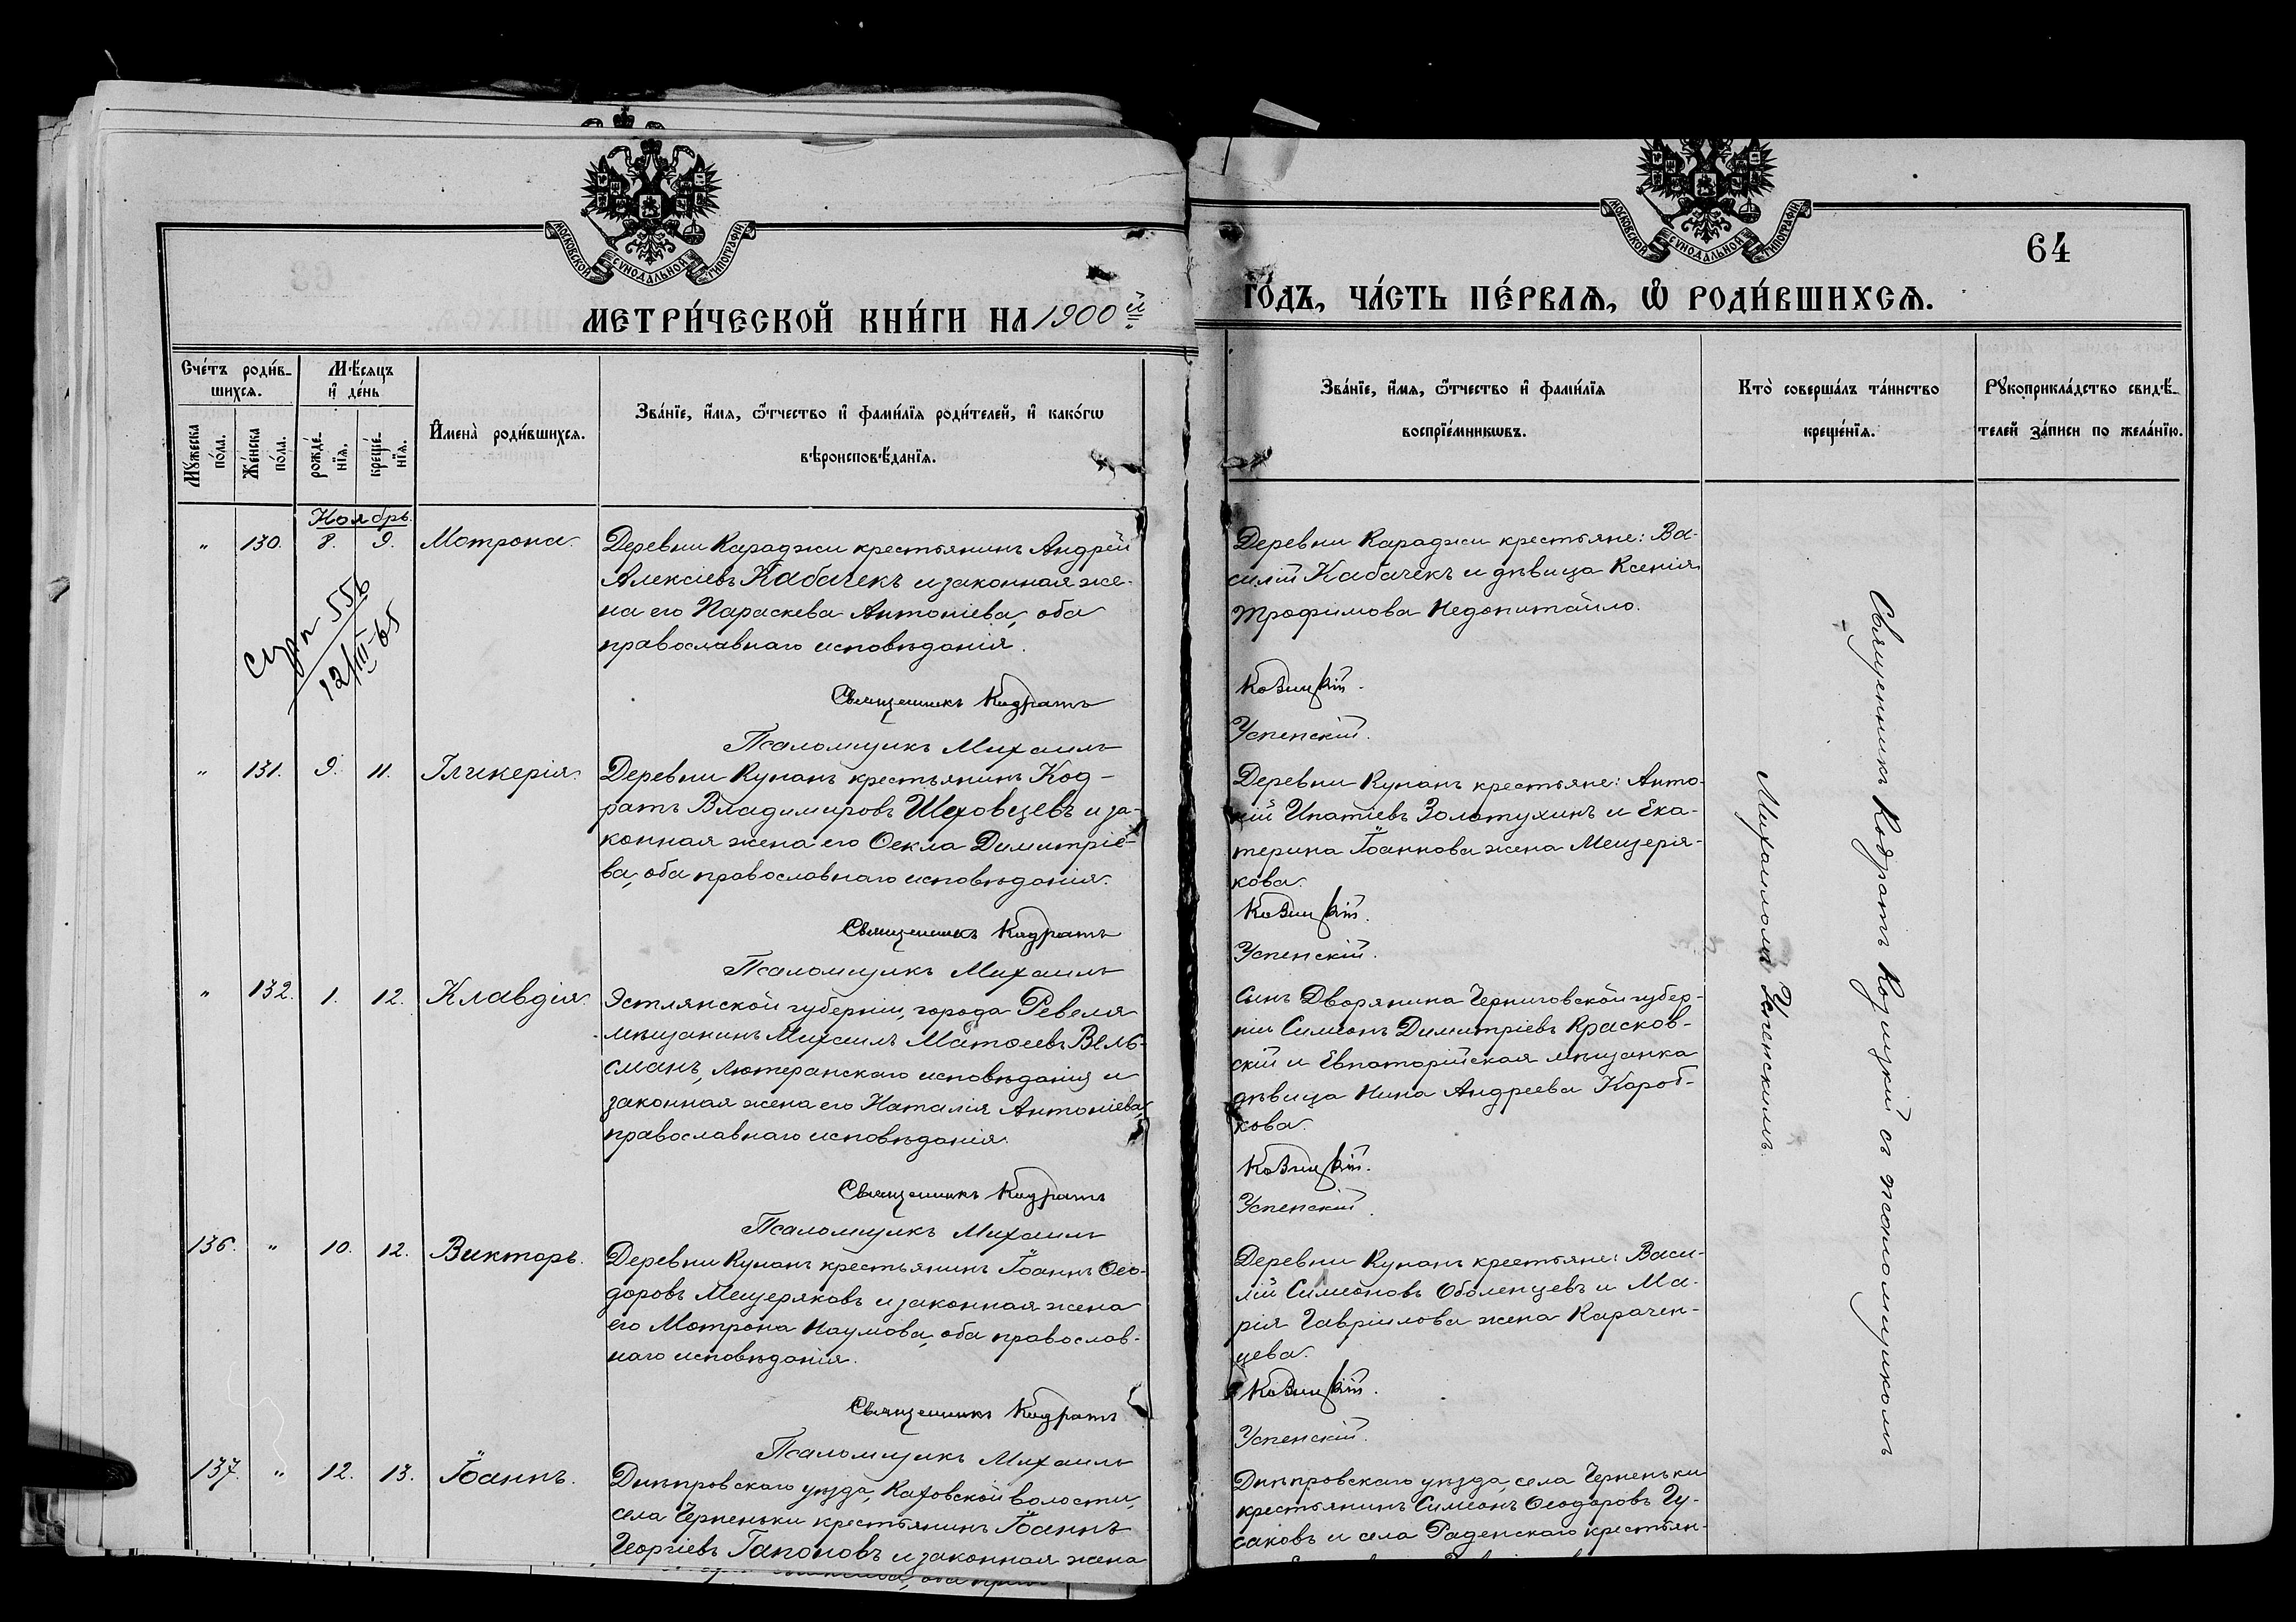 МОСКОВСКОЙ СУНОДАЛЬНОЙ ТИПОГРАФІИ
МЕТРИ́ЧЕСКОЙ КНИ́ГИ НА 1900й
Сче́тъ роди́в-
шихсѧ.
Мѣ́сѧцъ
и҆ де́нь
Мꙋ́жеска
по́ла.
Же́нска
по́ла.
рожде́-
нїѧ.
креще́-
нїѧ.
И҆мена̀ роди́вшихсѧ.
Зва́нїе, и҆́мѧ, ѻ҆́тчество и҆ фами́лїѧ роди́телей, и҆ како́гѡ
вѣроисповѣ́данїѧ.
Ноябрь.
" 130. 8. 9. Мотрона.
Деревни Караджи крестьянинъ Андрей
Алексіевъ Кабачекъ и законная же-
на его Параскева Антоніева, оба
православнаго исповѣданія.
556
12/III-65
Священникъ Кодратъ
Псаломщикъ Михаилъ
" 131. 9. 11. Гликерія.
Деревни Кунанъ крестьянинъ Код-
ратъ Владимировъ Шеховцевъ и за-
конная жена его Ѳекла Димитріе-
ва, оба православнаго исповѣданія.
Священникъ Кодратъ
Псаломщикъ Михаилъ
" 132. 1. 12. Клавдія.
Эстлянской губерніи, города Ревеля
мѣщанинъ Михаилъ Матѳеевъ Вель-
сманъ, лютеранскаго исповѣданія и
законная жена его Наталія Антоніева,
православнаго исповѣданія.
Священникъ Кодратъ
Псаломщикъ Михаилъ
136. " 10. 12. Викторъ.
Деревни Кунанъ крестьянинъ Іоаннъ Ѳео-
доровъ Мещеряковъ и законная жена
его Мотрона Наумова, оба православ-
наго исповѣданія.
Священникъ Кодратъ
Псаломщикъ Михаилъ
137. " 12. 13. Іоаннъ.
Днѣпровскаго уѣзда, Каховской волости,
села Черненьки крестьянинъ Іоаннъ
Георгіевъ Гапоновъ и законная жена
МОСКОВСКОЙ СУНОДАЛЬНОЙ ТИПОГРАФІИ
64
ГО́ДЪ, ЧА́СТЬ ПЕ́РВАѦ, Ѽ РОДИ́ВШИХСѦ.
Зва́нїе, и҆́мѧ, ѻ҆́тчество и҆ фами́лїѧ
воспрїе́мникѡвъ.
Кто̀ соверша́лъ та́инство
креще́нїѧ.
Рꙋкоприкла́дство свидѣ́-
телей за́писи по жела́нїю.
Деревни Караджи крестьяне: Ва-
силій Кабачекъ и дѣвица Ксенія
Трофимова Недопитайло.
Козицкій.
Успенскій.
Деревни Кунанъ крестьяне: Анто-
ній Ипатіевъ Золотухинъ и Ека-
терина Іоаннова жена Мещеря-
кова.
Козицкій.
Успенскій.
Сынъ Дворянина Черниговской губер-
ніи Симеонъ Димитріевъ Красков-
скій и Евпаторійская мѣщанка
дѣвица Нина Андреева Короб-
кова.
Козицкій.
Успенскій.
Деревни Кунанъ крестьяне: Васи-
лій Симеоновъ Оболенцевъ и Ма-
рія Гавріилова жена Карачен-
цева.
Козицкій.
Успенскій.
Днѣпровскаго уѣзда, села Черненьки
крестьянинъ Симеонъ Ѳеодоровъ Гу-
саковъ и села Раденскаго крестьян-
Священникъ Кодратъ Козицкій съ псаломщикомъ
Михаиломъ Успенскимъ.